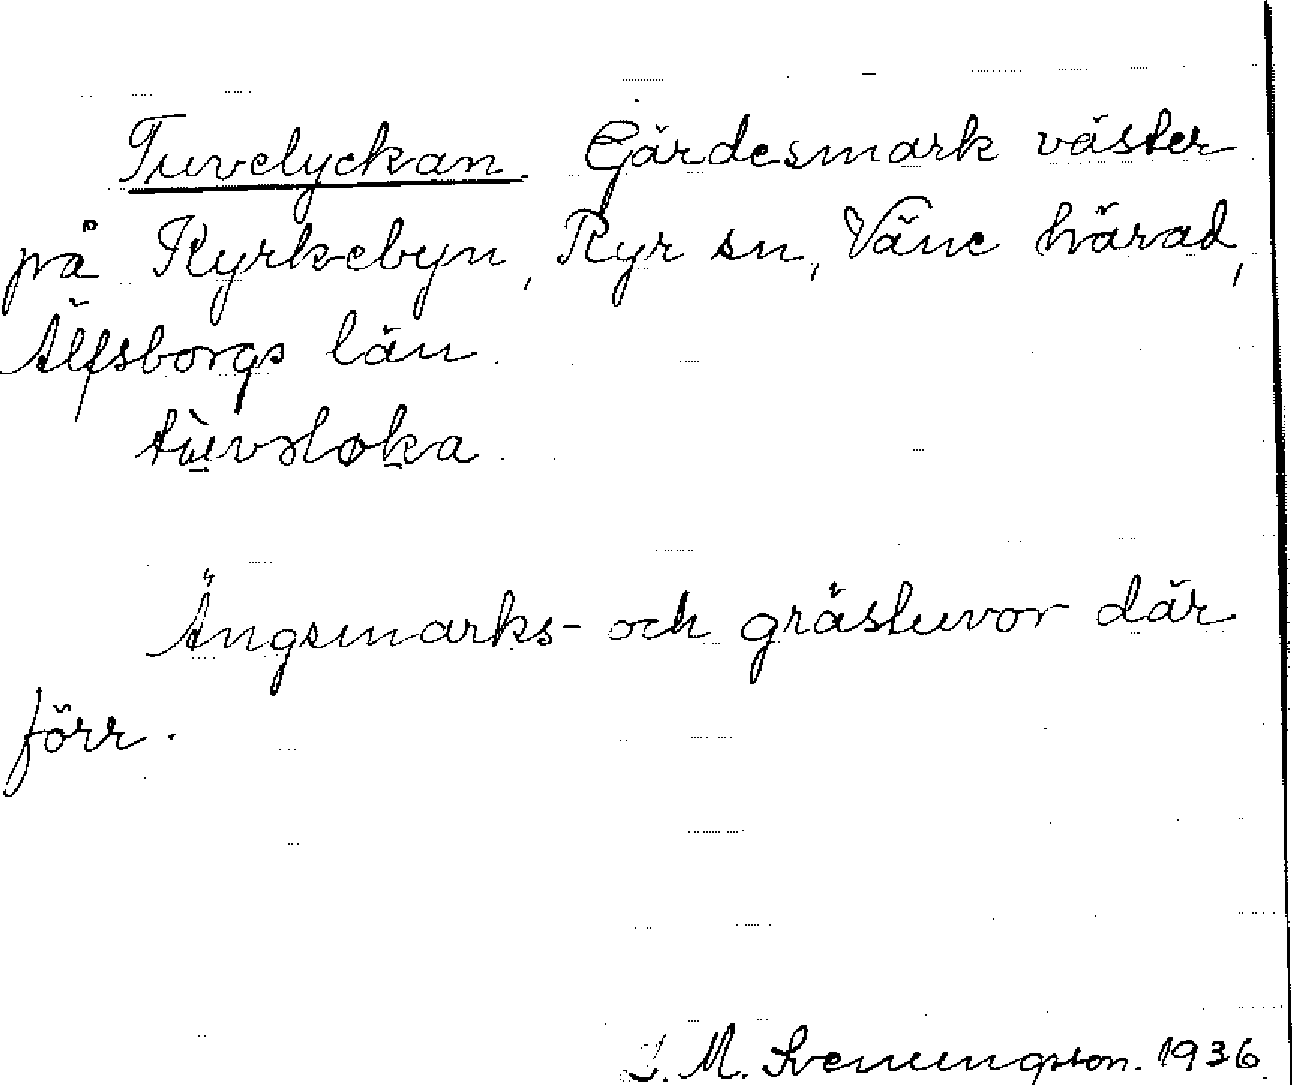 Tuvelyckan. Gärdesmark väster
på Kyrkebyn, Ryr sn, Väne härad,
Älfsborgs län.
tùvəløka.
Ängsmarks- och grästuvor där
förr.
M. Svenungsson. 1936